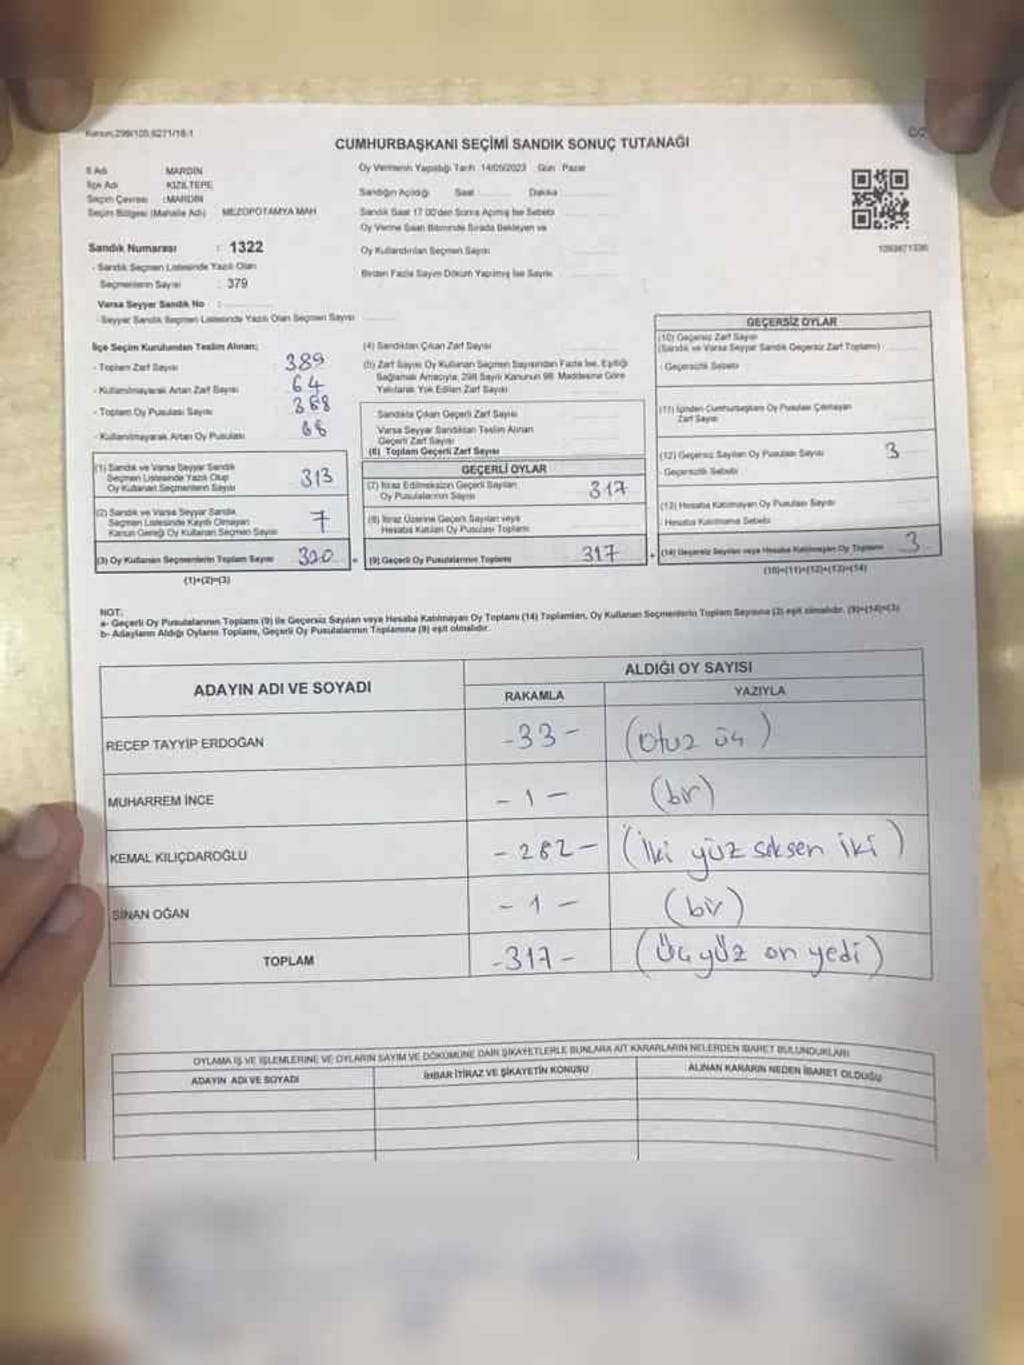 Kanun;298/105,6271/18-1
CUMHURBAŞKANI SEÇİMİ SANDIK SONUÇ TUTANAĞI
İl Adı MARDİN
İlçe Adı KIZILTEPE
Seçim Çevresi :MARDİN
Seçim Bölgesi (Mahalle Adı) MEZOPOTAMYA MAH
Sandık Numarası : 1322
- Sandık Seçmen Listesinde Yazılı Olan
Seçmenlerin Sayısı : 379
Varsa Seyyar Sandık No :
- Seyyar Sandık Seçmen Listesinde Yazılı Olan Seçmen Sayısı
Oy Vermenin Yapıldığı Tarih 14/05/2023 Gün : Pazar
Sandığın Açıldığı Saat Dakika
Sandık Saat 17.00'den Sonra Açılmış İse Sebebi
Oy Verme Saati Bitiminde Sırada Bekleyen ve
Oy Kullandırılan Seçmen Sayısı
Birden Fazla Sayım Döküm Yapılmış İse Sayısı
İlçe Seçim Kurulundan Teslim Alınan;
- Toplam Zarf Sayısı 389
- Kullanılmayarak Artan Zarf Sayısı 64
- Toplam Oy Pusulası Sayısı
- Kullanılmayarak Artan Oy Pusulası
(1) Sandık ve Varsa Seyyar Sandık
Seçmen Listesinde Yazılı Olup
Oy Kullanan Seçmenlerin Sayısı 313
(2) Sandık ve Varsa Seyyar Sandık
Seçmen Listesinde Kayıtlı Olmayan
Kanun Gereği Oy Kullanan Seçmen Sayısı 7
(3) Oy Kullanan Seçmenlerin Toplam Sayısı 320
(1)+(2)=(3)
(4) Sandıktan Çıkan Zarf Sayısı
(5) Zarf Sayısı Oy Kullanan Seçmen Sayısından Fazla İse, Eşitliği
Sağlamak Amacıyla, 298 Sayılı Kanunun 98. Maddesine Göre
Yakılarak Yok Edilen Zarf Sayısı
Sandıkta Çıkan Geçerli Zarf Sayısı
Varsa Seyyar Sandıktan Teslim Alınan
Geçerli Zarf Sayısı
(6) Toplam Geçerli Zarf Sayısı
GEÇERLİ OYLAR
(7) İtiraz Edilmeksizin Geçerli Sayılan
Oy Pusulalarının Sayısı 317
(8) İtiraz Üzerine Geçerli Sayılan veya
Hesaba Katılan Oy Pusulası Toplamı
(9) Geçerli Oy Pusulalarının Toplamı 317
GEÇERSİZ OYLAR
(10) Geçersiz Zarf Sayısı
(Sandık ve Varsa Seyyar Sandık Geçersiz Zarf Toplamı)
- Geçersizlik Sebebi
(11) İçinden Cumhurbaşkanı Oy Pusulası Çıkmayan
Zarf Sayısı
(12) Geçersiz Sayılan Oy Pusulası Sayısı 3
- Geçersizlik Sebebi
(13) Hesaba Katılmayan Oy Pusulası Sayısı
- Hesaba Katılmama Sebebi
(14) Geçersiz Sayılan veya Hesaba Katılmayan Oy Toplamı 3
(10)+(11)+(12)+(13)=(14)
NOT:
a- Geçerli Oy Pusulalarının Toplamı (9) ile Geçersiz Sayılan veya Hesaba Katılmayan Oy Toplamı (14) Toplamları, Oy Kullanan Seçmenlerin Toplam Sayısına (3) eşit olmalıdır. (9)+(14)=(3)
b- Adayların Aldığı Oyların Toplamı, Geçerli Oy Pusulalarının Toplamına (9) eşit olmalıdır.
ADAYIN ADI VE SOYADI ALDIĞI OY SAYISI
RAKAMLA YAZIYLA
RECEP TAYYİP ERDOĞAN -33- (otuz üç)
MUHARREM İNCE -1- (bir)
KEMAL KILIÇDAROĞLU -282- (İki yüz seksen iki)
SİNAN OĞAN -1- (bir)
TOPLAM -317- (Üç yüz on yedi)
OYLAMA İŞ VE İŞLEMLERİNE VE OYLARIN SAYIM VE DÖKÜMÜNE DAİR ŞİKAYETLERLE BUNLARA AİT KARARLARIN NELERDEN İBARET BULUNDUKLARI
ADAYIN ADI VE SOYADI İHBAR İTİRAZ VE ŞİKAYETİN KONUSU ALINAN KARARIN NEDEN İBARET OLDUĞU